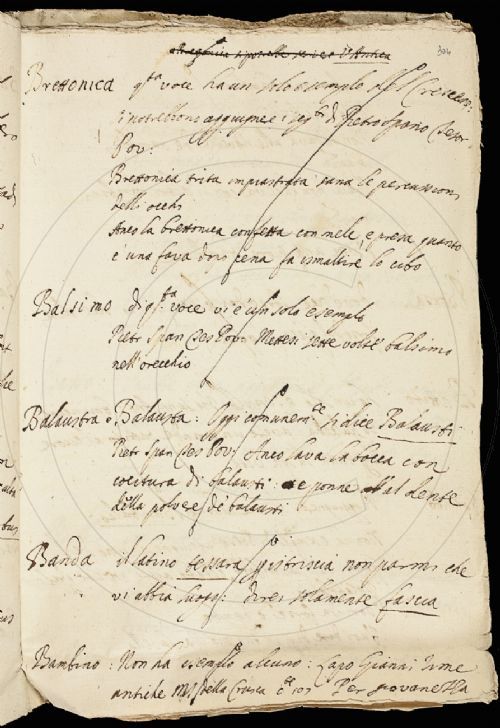 304
Brettonica q.ta voce ha un solo esempio del Crescen:
si potrebbono aggiugnere i seg.ti di Pietro Spano Tesor
Pov:
Brettonica trita impiastrata sana le percussioni
dell'occhi
Anco la brettonica confetta con mele, e presa quanto
è una fava dopo cena fa ismaltire lo cibo
Balsimo di q.ta voce vi è un solo esempio
Pietr Span Tes Pov: Mettesi sette volte balsimo
nell'orecchio
Balaustra o Balausta: Oggi comunem.te si dice Balausti
Pietr Span Tes Pov: Anco lava la bocca con
cocitura di balausti: e ponne al dente
della polvere de balausti
Banda il latino per istriscia non parmi che
vi abbia luogo: direi solamente fascia
Bambino: Non ha esempio alcuno: Lapo Gianni rime
antiche MS della Crusca Per giovanetta